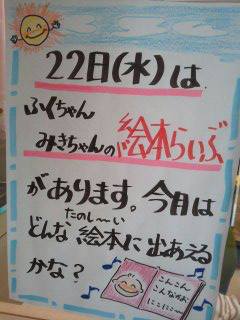 22日(水)は
ふくちゃん
みきちゃんの絵本らいぶ
があります。今月は
たのしーい
どんな絵本に出あえる
かな?
こんこん
こんなかお
にこにこ〜